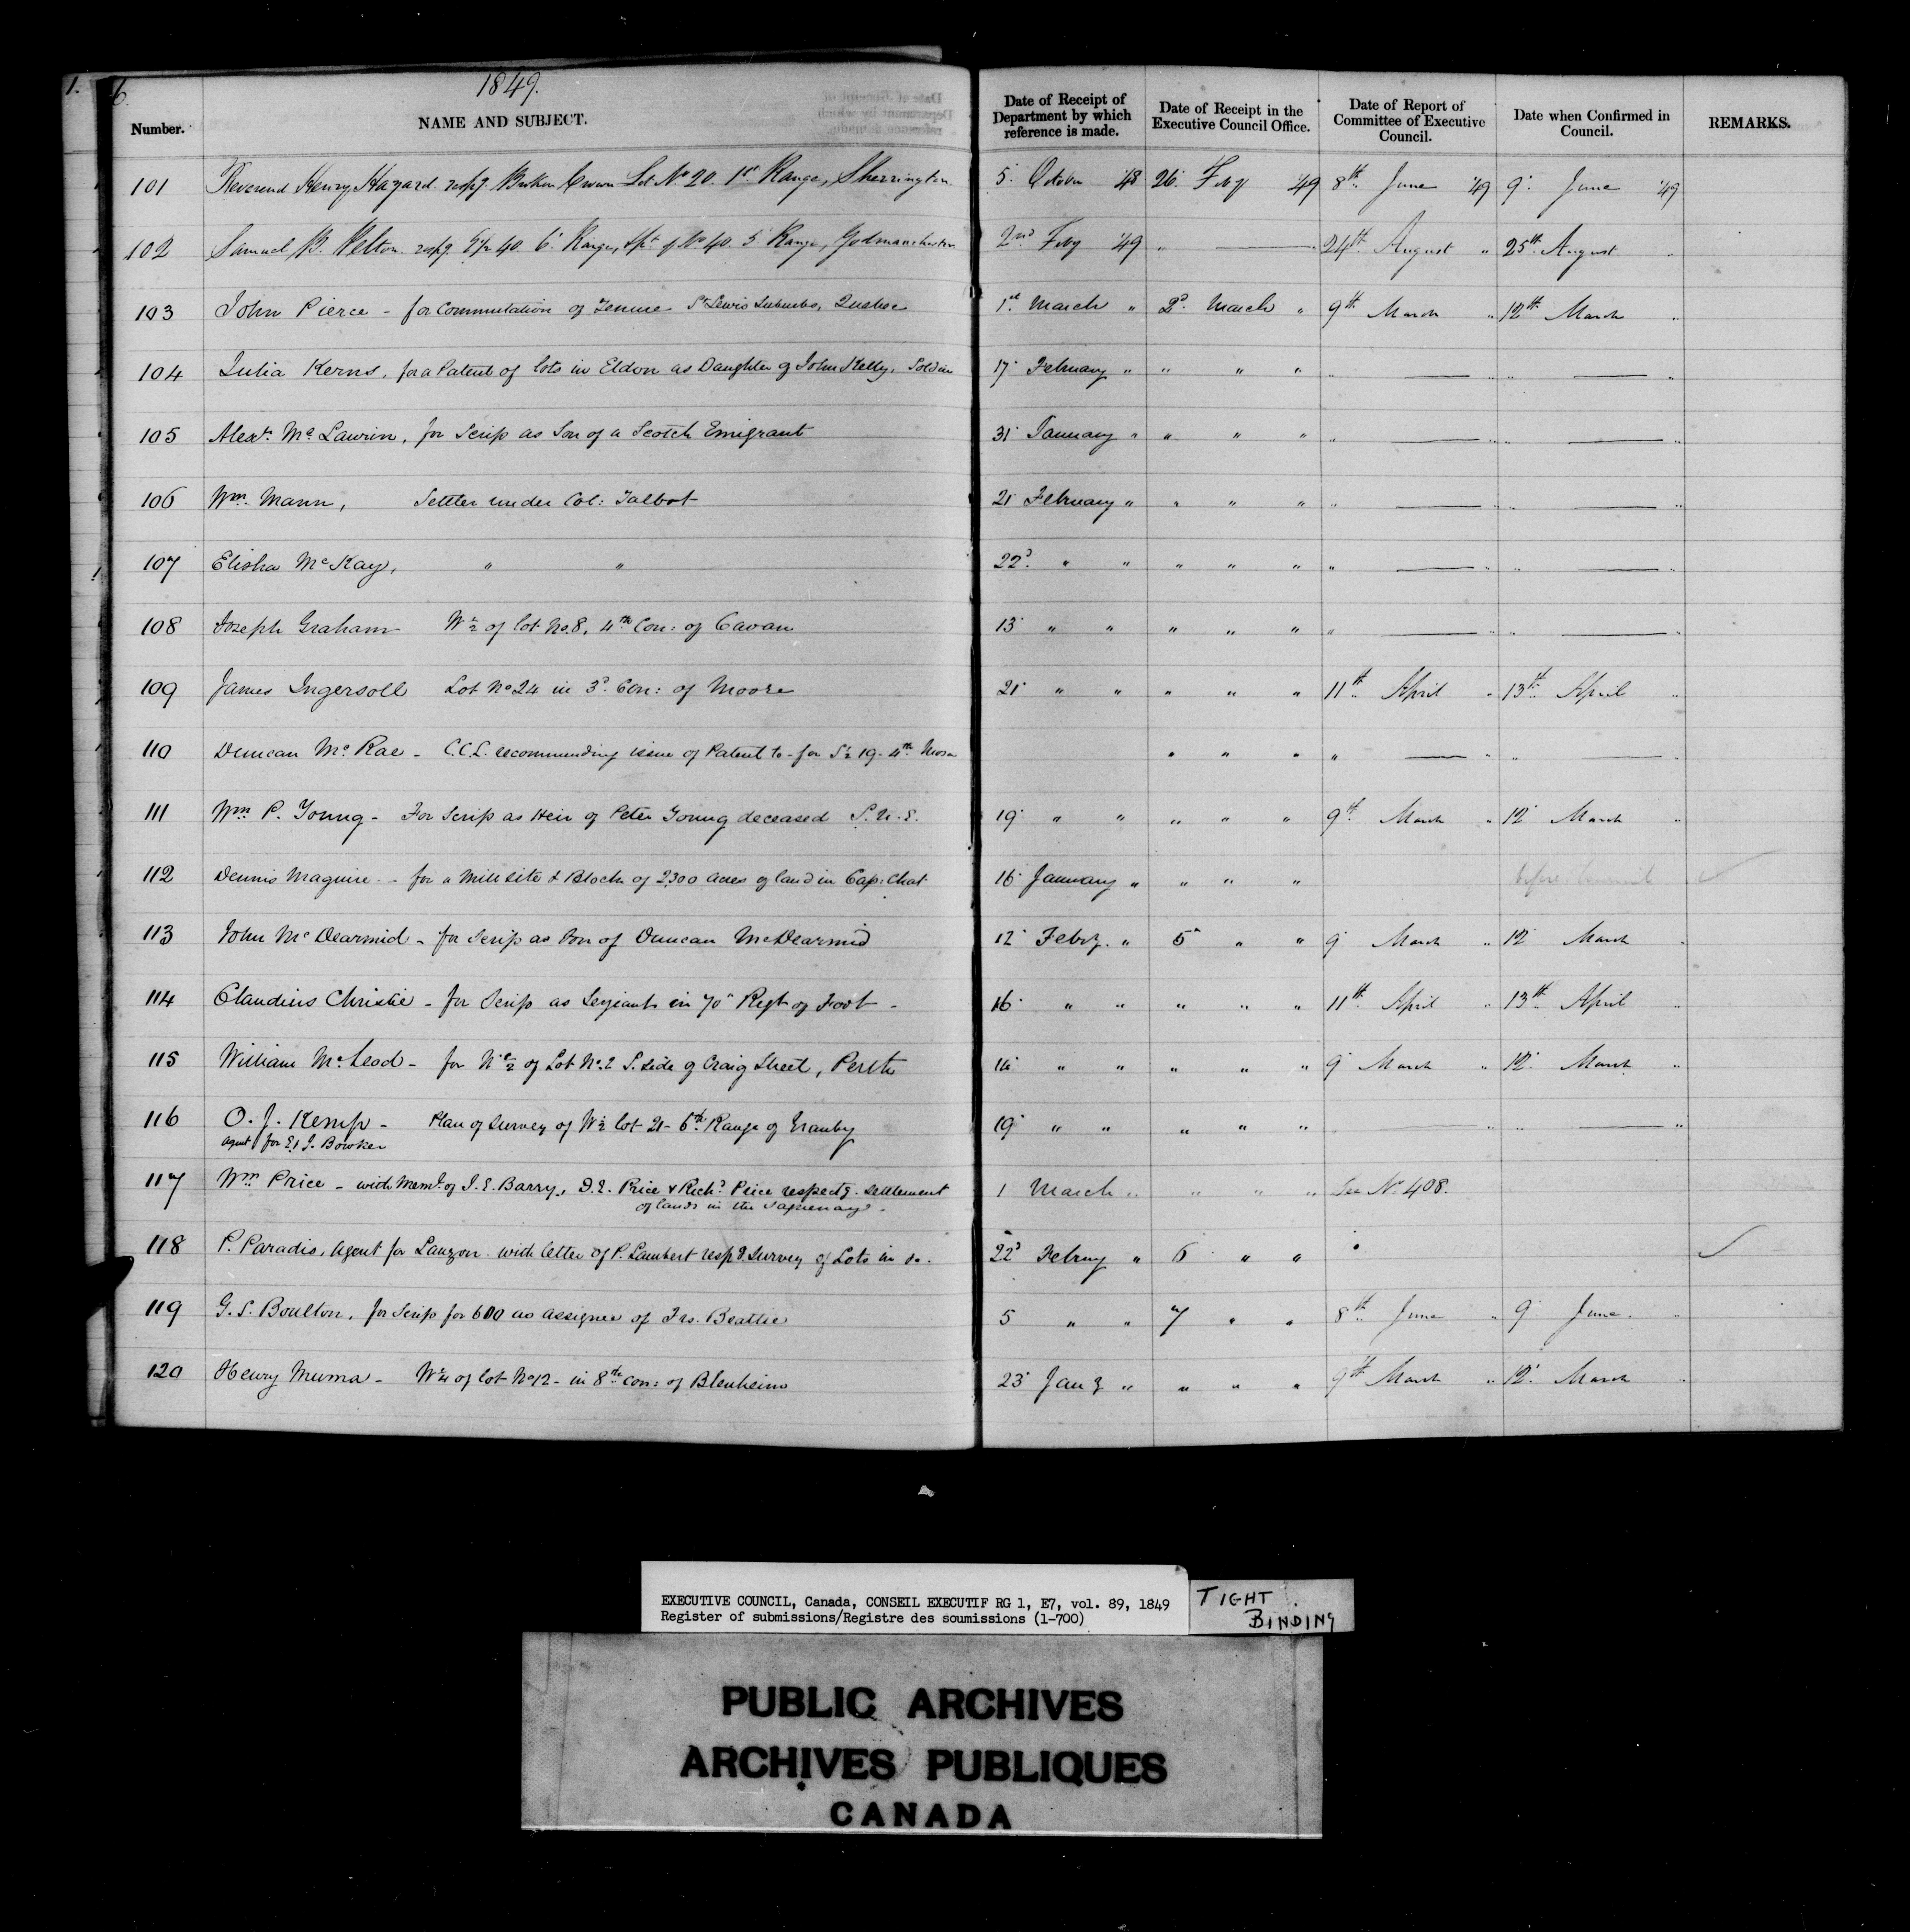 1.
6.
1849.
Number.
NAME AND SUBJECT.
Date of Receipt of Department by which reference is made.
Date of Receipt in the Executive Council Office.
Date of Report of Committee of Executive Council.
Date when Confirmed in Council.
REMARKS.
101 Reverend Henry Hazard. respg. Broken Crown Lot No 20. 1st Range, Sherrington 5. October '48 26. Feby '49 8th June '49 9. June '49
102 Samuel B. Pelton. respg. 40. 6. Range, pt of No 40. 5 Range, Godmanchester 2nd Feby '49 " — 24th August " 25th August "
103 John Pierce - for Commutation of Tenure St Lewis Suburbs, Quebec 1st March " 2d. March " 9th March " 12th March "
104 Julia Kerns, for a Patent of lots in Eldon as Daughter of John Kelly, Soldier 17 February " " " " " — " " — "
105 Alexr. McLaurin, for Scrip as Son of a Scotch Emigrant 31 January " " " " " — " " — "
106 Wm. Mann, Settler under Col: Talbot 21 February " " " " " — " " — "
107 Elisha McKay, " " 22d. " " " " " " — " " — "
108 Joseph Graham W½ of lot No. 8, 4th Con: of Cavan 13 " " " " " " — " " — "
109 James Ingersoll Lot No 24 in 3d. Con: of Moore 21 " " " " " 11th April " 13th April "
110 Duncan McRae - C.C.L. recommending issue of Patent to - for S½ 19. 4th Mosa " " " " — " " — "
111 Wm. P. Young - For Scrip as Heir of Peter Young deceased S.U.E. 19 " " " " " 9th March " 12 March "
112 Dennis Maguire - for a Mill site & Block of 2,300 acres of land in Cap: Chat. 16 January " " " " before Council
113 John McDearmid - for Scrip as Son of Duncan McDearmid 12 Feby. " 5 " " 9 March " 12 March "
114 Claudius Christie - for Scrip as Serjeant in 70 Regt of Foot - 16 " " " " " 11th April " 13th April "
115 William McLeod - for Ne½ of Lot No. 2 S. side of Craig Street, Perth 14 " " " " " 9 March " 12. March "
116 O. J. Kemp - Plan of Survey of W½ lot 21 - 6th Range of Granby 19 " " " " " — " " — "
agent for E. J. Bowker
117 Wm Price - with Meml. of J. E. Barry, D. E. Price & Richd Price respectg. settlement 1 March " " " " See No. 408.
of lands in the Saguenay.
118 P. Paradis, Agent for Lauzon. with letter of P. Lambert respg Survey of Lots in do. 22d Febry " 6 " "
119 G. S. Boulton, for Scrip for 600 as assignee of Jas. Beattie 5 " " 7 " " 8th June " 9. June. "
120 Henry Muma - W½ of lot No 12 - in 8th con: of Blenheim 23 Jany " " " " 9th March " 12. March "
EXECUTIVE COUNCIL, Canada, CONSEIL EXECUTIF RG 1, E7, vol. 89, 1849
Register of submissions/Registre des soumissions (1-700)
TIGHT
BINDING
PUBLIC ARCHIVES
ARCHIVES PUBLIQUES
CANADA